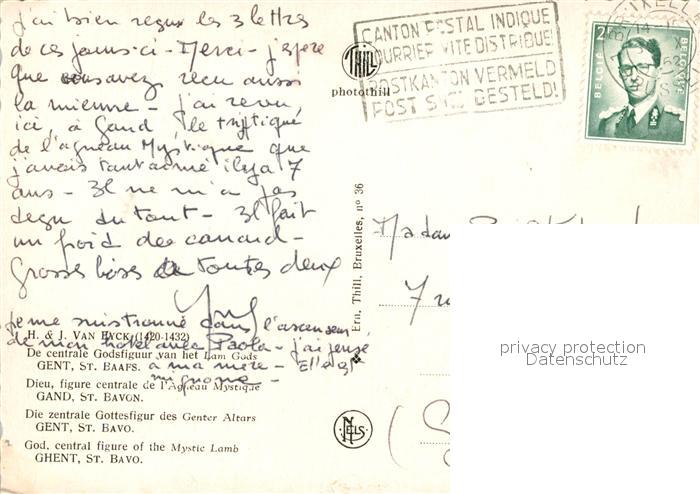 j'ai bien reçu les 3 lettres
de ces jours-ci - Merci - j'espère
que vous avez reçu aussi
la mienne - j'ai revu,
ici, à Gand, le triptique
de l'agneau Mystique que
j'avais tant aimé il y a 7
ans - Il ne m'a pas
deçu du tout - Il fait
un froid de canard -
Grosses bises de toutes deux
je me suis trouvé dans l'ascenseur
de mon hotel avec Paola - j'ai pensé
à ma mère - Elle est
mignonne -
H. & J. VAN EYCK (1420-1432)
De centrale Godsfiguur van het Lam Gods
GENT, ST. BAAFS.
Dieu, figure centrale de l'Agneau Mystique
GAND, ST. BAVON.
Die zentrale Gottesfigur des Genter Altars
GENT, ST. BAVO.
God, central figure of the Mystic Lamb
GHENT, ST. BAVO.
THILL
photothill
Ern. Thill, Bruxelles, n° 36
NELS
CANTON POSTAL INDIQUE
COURRIER VITE DISTRIBUE!
POSTKANTON VERMELD
POST SNEL BESTELD!
2F
BELGIE
BELGIQUE
Madame
7 rue
privacy protection
Datenschutz